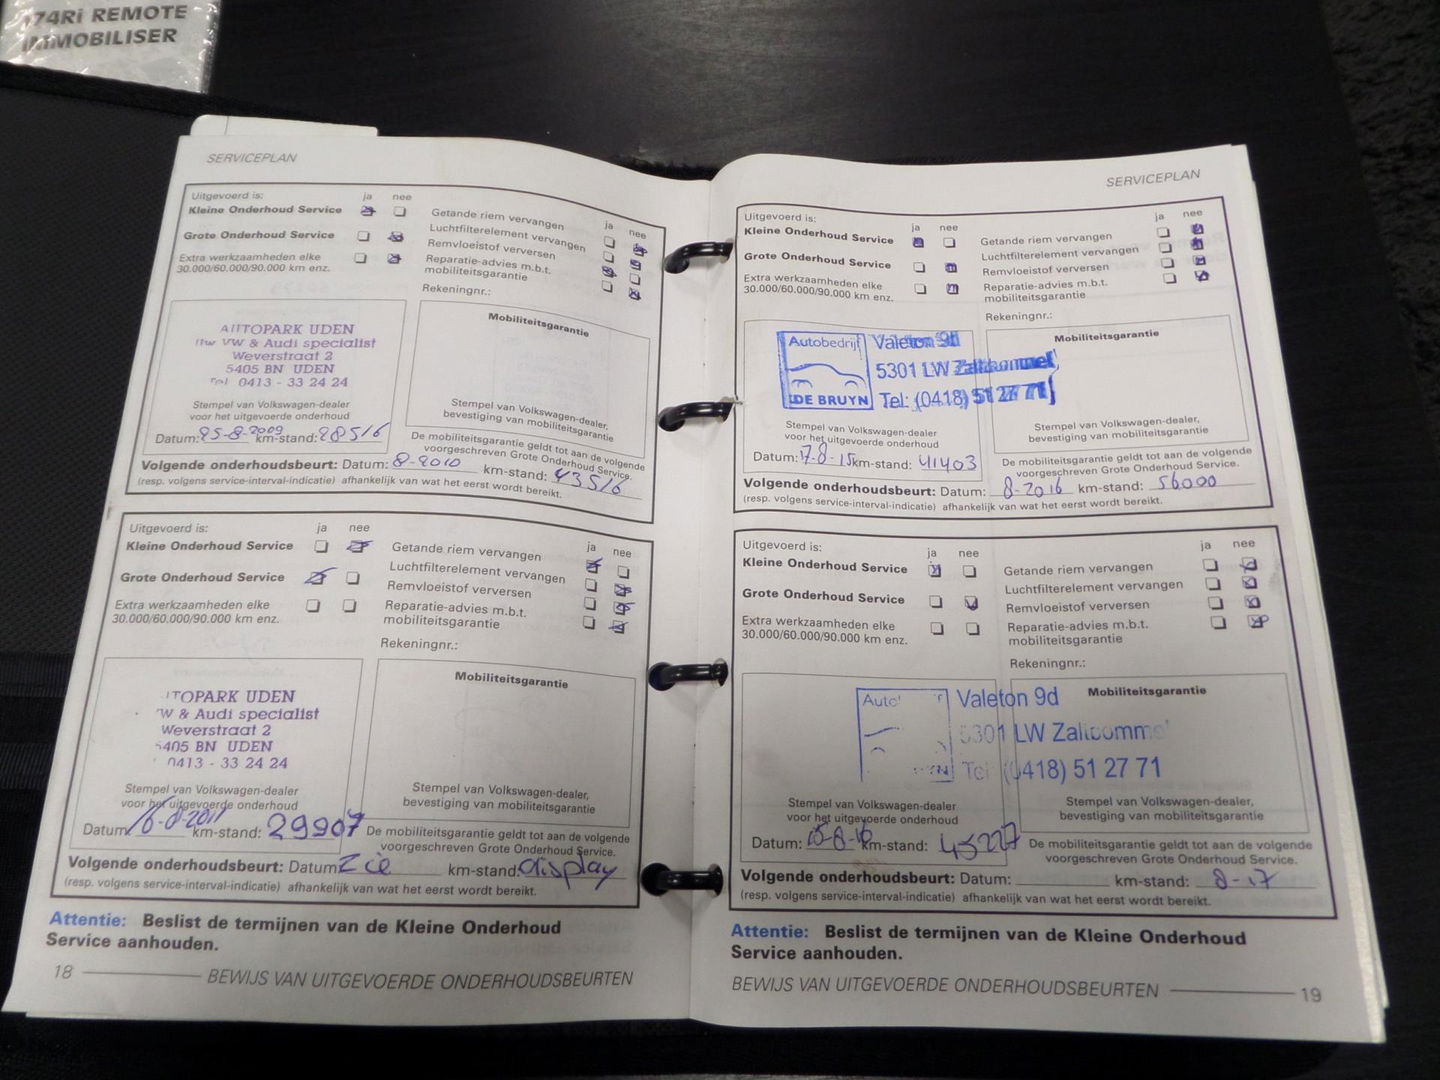 74Ri REMOTE
IMMOBILISER
SERVICEPLAN
Uitgevoerd is: ja nee
Kleine Onderhoud Service
Grote Onderhoud Service
Extra werkzaamheden elke
30.000/60.000/90.000 km enz.
ja nee
Getande riem vervangen
Luchtfilterelement vervangen
Remvloeistof verversen
Reparatie-advies m.b.t.
mobiliteitsgarantie
Rekeningnr.:
AUTOPARK UDEN
Uw VW & Audi specialist
Weverstraat 2
5405 BN UDEN
Tel 0413 - 33 24 24
Stempel van Volkswagen-dealer
voor het uitgevoerde onderhoud
Datum: 25-8-2009 km-stand: 28516
Mobiliteitsgarantie
Stempel van Volkswagen-dealer,
bevestiging van mobiliteitsgarantie
De mobiliteitsgarantie geldt tot aan de volgende
voorgeschreven Grote Onderhoud Service.
Volgende onderhoudsbeurt: Datum: 8-2010 km-stand: 43516
(resp. volgens service-interval-indicatie) afhankelijk van wat het eerst wordt bereikt.
Uitgevoerd is: ja nee
Kleine Onderhoud Service
Grote Onderhoud Service
Extra werkzaamheden elke
30.000/60.000/90.000 km enz.
ja nee
Getande riem vervangen
Luchtfilterelement vervangen
Remvloeistof verversen
Reparatie-advies m.b.t.
mobiliteitsgarantie
Rekeningnr.:
UTOPARK UDEN
VW & Audi specialist
Weverstraat 2
5405 BN UDEN
0413 - 33 24 24
Stempel van Volkswagen-dealer
voor het uitgevoerde onderhoud
Datum: 16-8-2011 km-stand: 29907
Mobiliteitsgarantie
Stempel van Volkswagen-dealer,
bevestiging van mobiliteitsgarantie
De mobiliteitsgarantie geldt tot aan de volgende
voorgeschreven Grote Onderhoud Service.
Volgende onderhoudsbeurt: Datum: Zie km-stand: display
(resp. volgens service-interval-indicatie) afhankelijk van wat het eerst wordt bereikt.
Attentie: Beslist de termijnen van de Kleine Onderhoud
Service aanhouden.
18 BEWIJS VAN UITGEVOERDE ONDERHOUDSBEURTEN
SERVICEPLAN
Uitgevoerd is: ja nee
Kleine Onderhoud Service
Grote Onderhoud Service
Extra werkzaamheden elke
30.000/60.000/90.000 km enz.
ja nee
Getande riem vervangen
Luchtfilterelement vervangen
Remvloeistof verversen
Reparatie-advies m.b.t.
mobiliteitsgarantie
Rekeningnr.:
Autobedrijf
DE BRUYN
Valeton 9d
5301 LW Zaltbommel
Tel: (0418) 51 27 71
Stempel van Volkswagen-dealer
voor het uitgevoerde onderhoud
Datum: 17-8-15 km-stand: 41403
Mobiliteitsgarantie
Stempel van Volkswagen-dealer,
bevestiging van mobiliteitsgarantie
De mobiliteitsgarantie geldt tot aan de volgende
voorgeschreven Grote Onderhoud Service.
Volgende onderhoudsbeurt: Datum: 8-2016 km-stand: 56000
(resp. volgens service-interval-indicatie) afhankelijk van wat het eerst wordt bereikt.
Uitgevoerd is: ja nee
Kleine Onderhoud Service
Grote Onderhoud Service
Extra werkzaamheden elke
30.000/60.000/90.000 km enz.
ja nee
Getande riem vervangen
Luchtfilterelement vervangen
Remvloeistof verversen
Reparatie-advies m.b.t.
mobiliteitsgarantie
Rekeningnr.:
Valeton 9d
5301 LW Zaltbomme
Tel (0418) 51 27 71
Stempel van Volkswagen-dealer
voor het uitgevoerde onderhoud
Datum: 05-8-16 km-stand: 45227
Mobiliteitsgarantie
Stempel van Volkswagen-dealer,
bevestiging van mobiliteitsgarantie
De mobiliteitsgarantie geldt tot aan de volgende
voorgeschreven Grote Onderhoud Service.
Volgende onderhoudsbeurt: Datum: km-stand: 8-17
(resp. volgens service-interval-indicatie) afhankelijk van wat het eerst wordt bereikt.
Attentie: Beslist de termijnen van de Kleine Onderhoud
Service aanhouden.
BEWIJS VAN UITGEVOERDE ONDERHOUDSBEURTEN 19